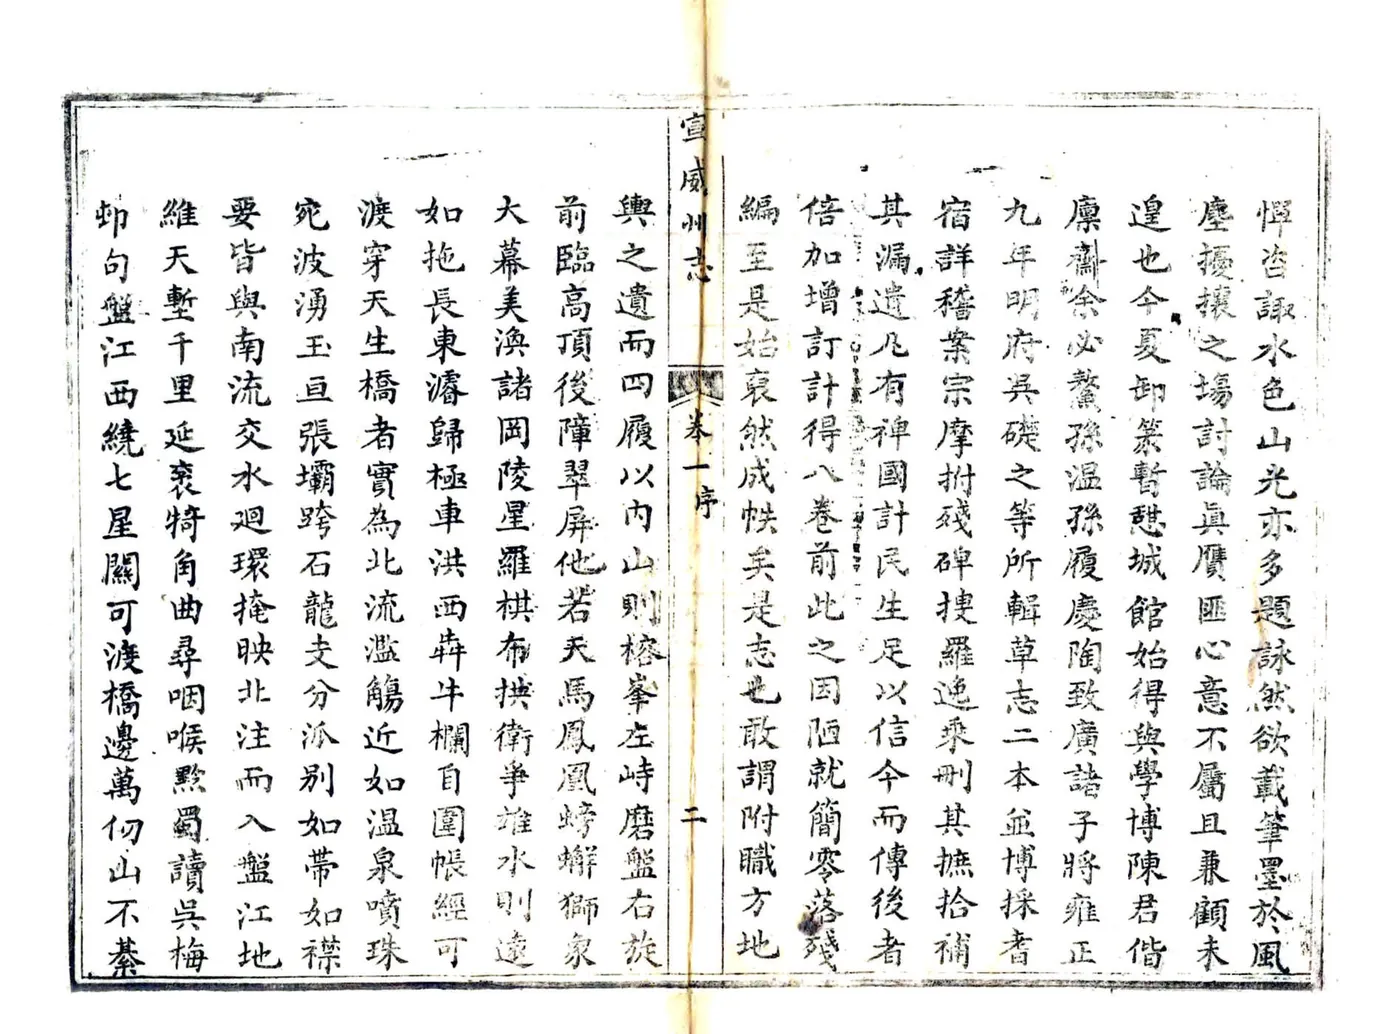 憚咨諏水色山光亦多題詠然欲載筆墨於風
塵擾攘之場討論眞贋匪心意不屬且兼顧未
遑也今夏卸篆暫憇城館始得與學博陳君偕
廩齋余必鰲孫温孫履慶陶致廣諸子將雍正
九年明府吳礎之等所輯草志二本並博採耆
宿詳稽案宗摩拊殘碑摟羅逸乘刪其摭拾補
其漏遺凡有裨國計民生足以信今而傳後者
倍加增訂計得八卷前此之因陋就簡零落殘
編至是始裒然成帙矣是志也敢謂附職方地
宣威州志
卷一序
二
輿之遺而四履以內山則榕峯左峙磨盤右旋
前臨高頂後障翠屏他若天馬鳳凰螃蠏獅象
大幕美渙諸岡陵星羅棋布拱衛爭雄水則遠
如拖長東濬歸極車洪西犇牛欄自圍帳經可
渡穿天生橋者實為北流濫觴近如温泉噴珠
宛波湧玉亘張壩跨石龍支分派别如帶如襟
要皆與南流交水廻環掩映北注而入盤江地
維天塹千里延袤犄角曲尋咽喉黔蜀讀吳梅
邨句盤江西繞七星關可渡橋邊萬仞山不綦